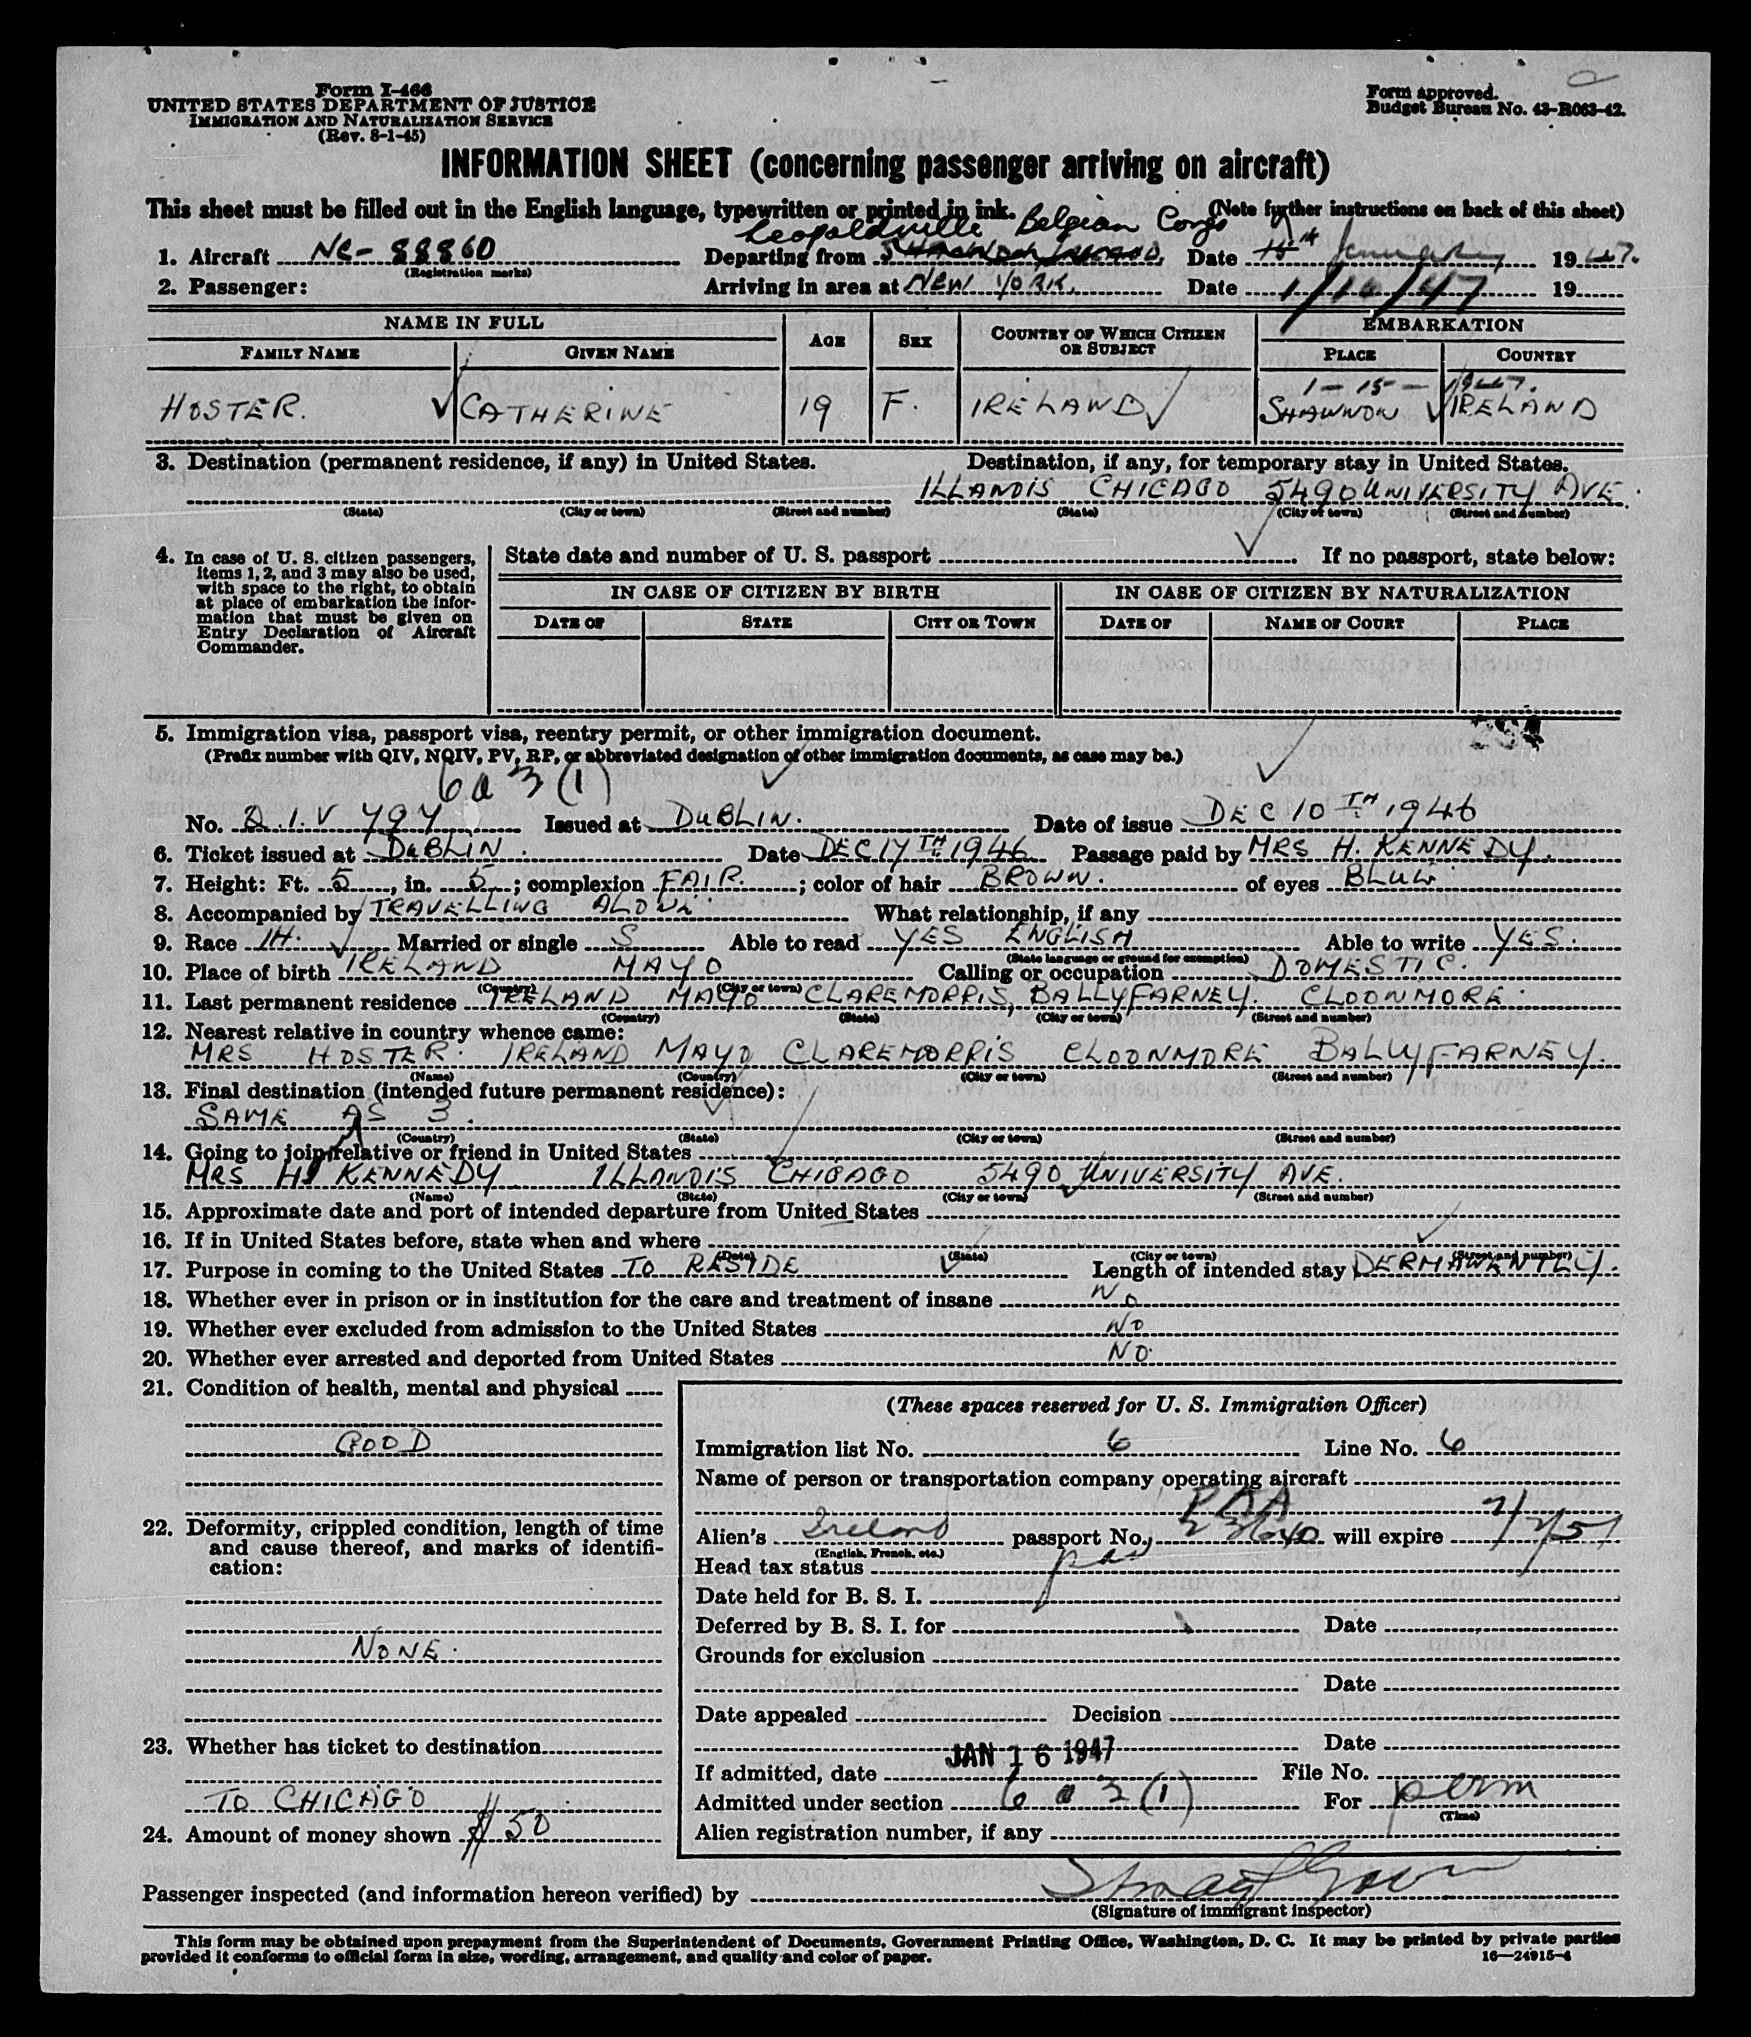 Form I-466
UNITED STATES DEPARTMENT OF JUSTICE
IMMIGRATION AND NATURALIZATION SERVICE
(Rev. 8-1-45)
Form approved.
Budget Bureau No. 43-R063-42.
INFORMATION SHEET (concerning passenger arriving on aircraft)
This sheet must be filled out in the English language, typewritten or printed in ink. (Note further instructions on back of this sheet)
Leopoldville Belgian Congo
1. Aircraft NC-88860 Departing from Date 15th January 1947.
(Registration marks)
2. Passenger: Arriving in area at NEW YORK. Date 1/16/47 19
NAME IN FULL AGE SEX COUNTRY OF WHICH CITIZEN OR SUBJECT EMBARKATION
FAMILY NAME GIVEN NAME PLACE COUNTRY
1-15-1947.
HOSTER. CATHERINE 19 F. IRELAND SHANNON IRELAND
3. Destination (permanent residence, if any) in United States. Destination, if any, for temporary stay in United States.
ILLANOIS CHICAGO 5490 UNIVERSITY AVE.
(State) (City or town) (Street and number) (State) (City or town) (Street and number)
4. In case of U. S. citizen passengers, items 1, 2, and 3 may also be used, with space to the right, to obtain at place of embarkation the information that must be given on Entry Declaration of Aircraft Commander.
State date and number of U. S. passport If no passport, state below:
IN CASE OF CITIZEN BY BIRTH IN CASE OF CITIZEN BY NATURALIZATION
DATE OF STATE CITY OR TOWN DATE OF NAME OF COURT PLACE
5. Immigration visa, passport visa, reentry permit, or other immigration document.
(Prefix number with QIV, NQIV, PV, RP, or abbreviated designation of other immigration documents, as case may be.)
6 a 3 (1)
No. Q.I.V 797 Issued at DUBLIN. Date of issue DEC 10TH 1946
6. Ticket issued at DUBLIN. Date DEC 17TH 1946 Passage paid by MRS H. KENNEDY.
7. Height: Ft. 5, in. 5; complexion FAIR.; color of hair BROWN. of eyes BLUW
8. Accompanied by TRAVELLING ALONE. What relationship, if any
9. Race IH. Married or single S Able to read YES ENGLISH Able to write YES.
(State language or ground for exemption)
10. Place of birth IRELAND MAYO Calling or occupation DOMESTIC.
(Country) (City or town)
11. Last permanent residence IRELAND MAYO CLAREMORRIS, BALLYFARNEY. CLOONMORE.
(Country) (State) (City or town) (Street and number)
12. Nearest relative in country whence came:
MRS HOSTER. IRELAND MAYO CLAREMORRIS CLOONMORE BALLYFARNEY.
(Name) (Country) (City or town) (Street and number)
13. Final destination (intended future permanent residence):
SAME AS 3.
(Country) (State) (City or town) (Street and number)
14. Going to join relative or friend in United States
MRS H. KENNEDY ILLANOIS CHICAGO 5490 UNIVERSITY AVE.
(Name) (State) (City or town) (Street and number)
15. Approximate date and port of intended departure from United States
16. If in United States before, state when and where
(Date) (State) (City or town) (Street and number)
17. Purpose in coming to the United States TO RESIDE Length of intended stay DERMAWENTLY.
18. Whether ever in prison or in institution for the care and treatment of insane NO
19. Whether ever excluded from admission to the United States NO
20. Whether ever arrested and deported from United States NO.
21. Condition of health, mental and physical
GOOD
22. Deformity, crippled condition, length of time and cause thereof, and marks of identification:
NONE.
23. Whether has ticket to destination
TO CHICAGO
24. Amount of money shown $ 50
(These spaces reserved for U. S. Immigration Officer)
Immigration list No. 6 Line No. 6
Name of person or transportation company operating aircraft
PAA
Alien's Ireland passport No. will expire
(English, French, etc.)
Head tax status
Date held for B. S. I.
Deferred by B. S. I. for Date
Grounds for exclusion
Date
Date appealed Decision
Date
If admitted, date JAN 16 1947 File No.
Admitted under section 6 a 3 (1) For perm
(Time)
Alien registration number, if any
Passenger inspected (and information hereon verified) by
(Signature of immigrant inspector)
This form may be obtained upon prepayment from the Superintendent of Documents, Government Printing Office, Washington, D. C. It may be printed by private parties
provided it conforms to official form in size, wording, arrangement, and quality and color of paper. 16—24915-4